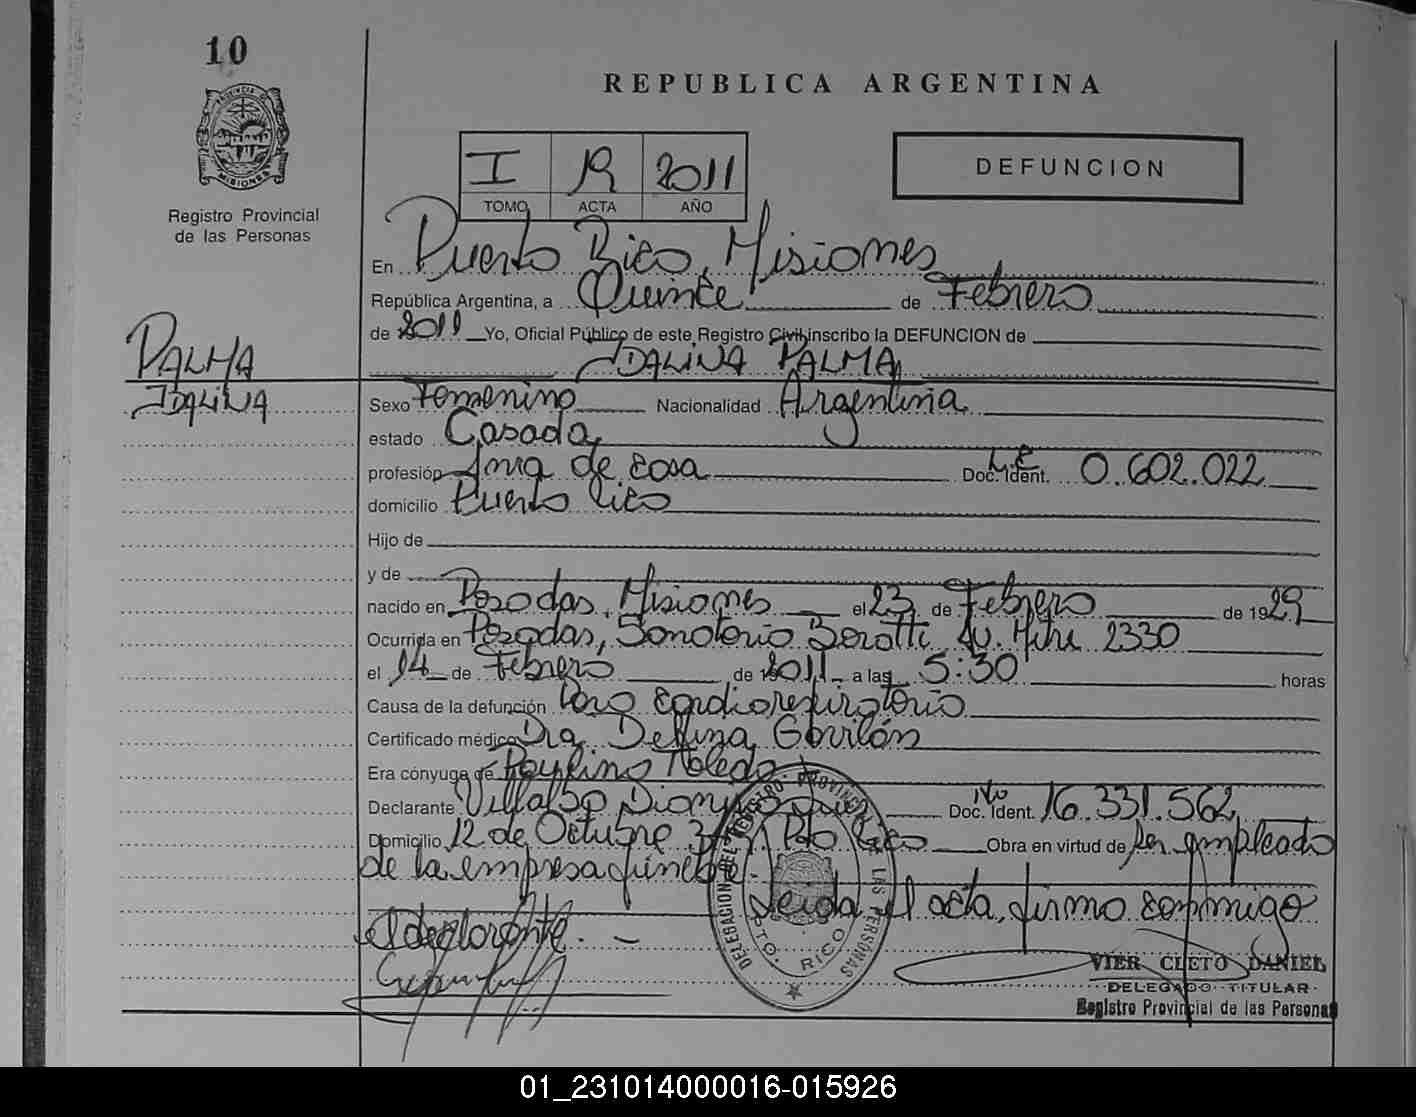 10
REPUBLICA ARGENTINA
PROVINCIA DE
MISIONES
Registro Provincial
de las Personas
I 2011
TOMO ACTA AÑO
DEFUNCION
En Puerto Rico, Misiones
República Argentina, a Quince de Febrero
de 2011 Yo, Oficial Público de este Registro Civil inscribo la DEFUNCION de
IDALINA PALMA
PALMA
IDALINA
Sexo Femenino Nacionalidad Argentina
estado Casada
profesión Ama de casa Doc. Ident. L.C. 0.602.022
domicilio Puerto Rico
Hijo de
y de
nacido en Posadas, Misiones el 23 de Febrero de 1929
Ocurrida en Posadas, Sanatorio Boratti Av. Mitre 2330
el 14 de Febrero de 2011 a las 5:30 horas
Causa de la defunción Paro cardiorespiratorio
Certificado médico Dra. Delfina
Era cónyuge de Paulino Toledo
Declarante Villalba Dionisio Doc. Ident. No 16.331.562
Domicilio 12 de Octubre Pto Rico Obra en virtud de Ser empleado
de la empresa fúnebre.
Leida el acta, firmo conmigo
el declarante. -
DELEGACION DEL REGISTRO PROVINCIAL DE LAS PERSONAS
PTO. RICO
VIER CLETO DANIEL
DELEGADO TITULAR
Registro Provincial de las Personas
01_231014000016-015926